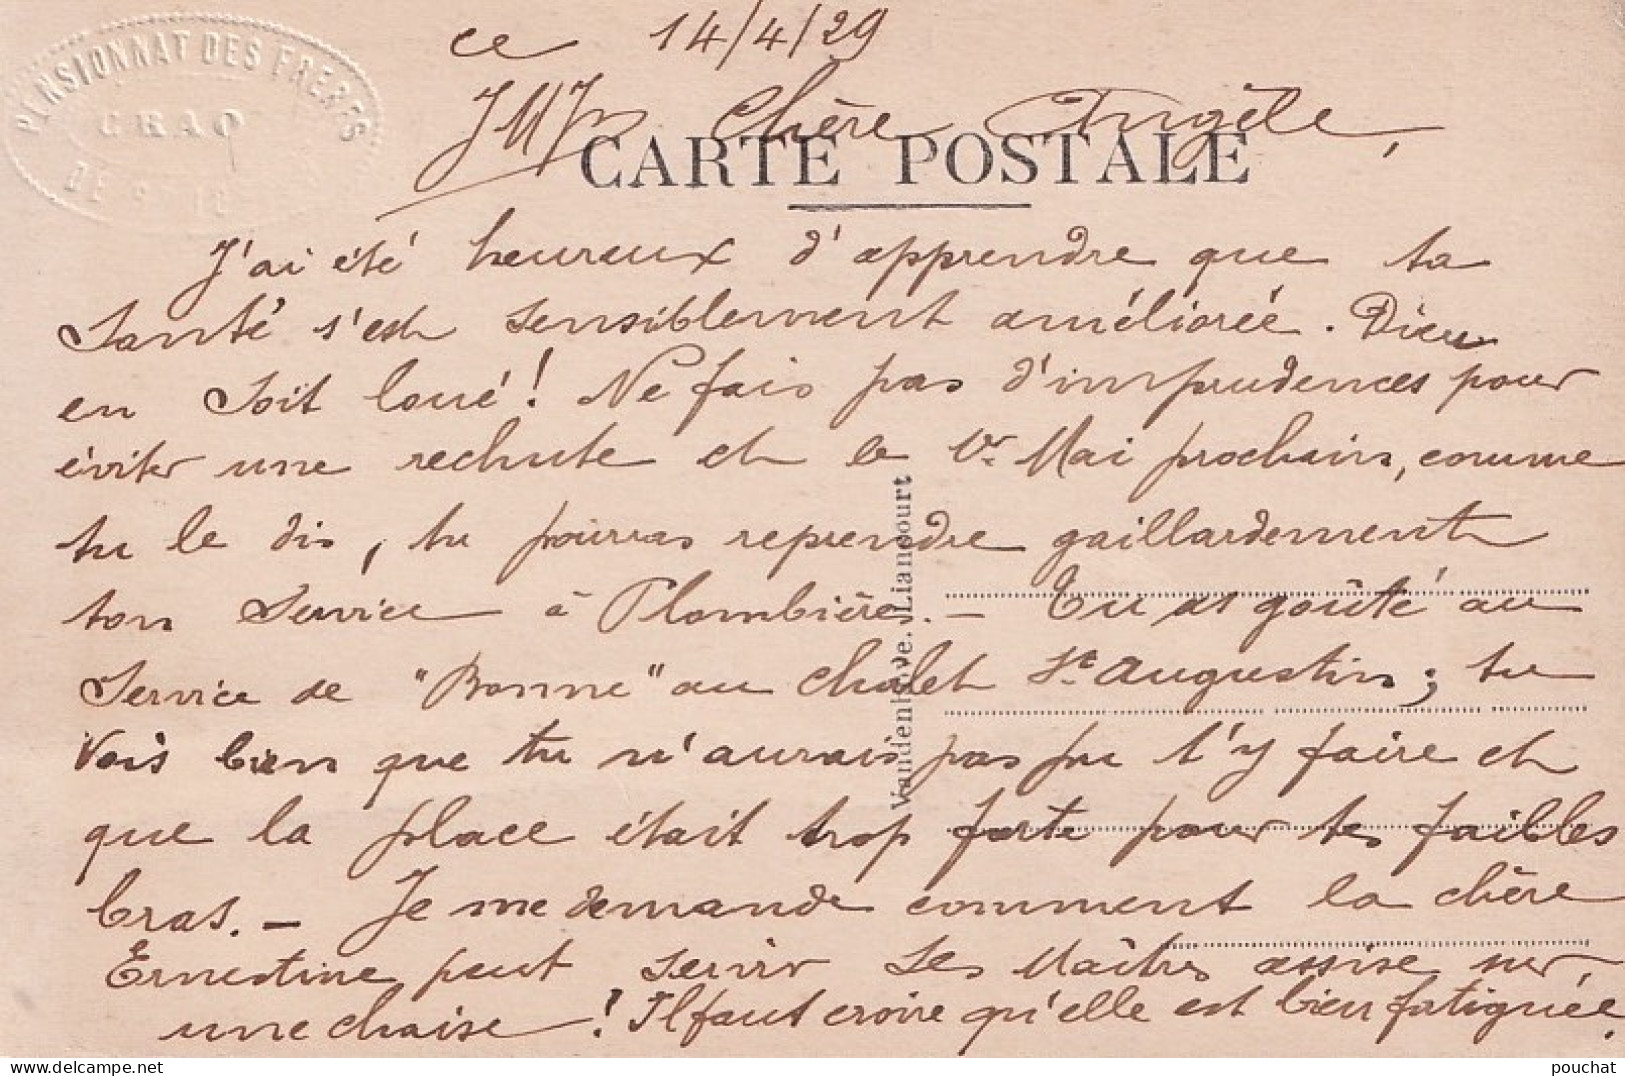 PENSIONNAT DES FRERES
ce 14/4/29
JMJ Chère Angèle,
CARTE POSTALE
J'ai été heureux d'apprendre que ta
Santé s'est sensiblement améliorée. Dieu
en Soit loué! Ne fais pas d'imprudences pour
éviter une rechute et le 1er Mai prochain, comme
tu le dis, tu pourras reprendre gaillardement
ton Service à Plombières. - Tu as goûté au
Service de "Bonne" au chalet St Augustin; tu
vois bien que tu n'aurais pas pu t'y faire et
que la place était trop forte pour tes faibles
bras. - Je me demande comment la chère
Ernestine peut servir ses Maîtres assise sur
une chaise! Il faut croire qu'elle est bien fatiguée.
Vandenhove. Liancourt
pouchat